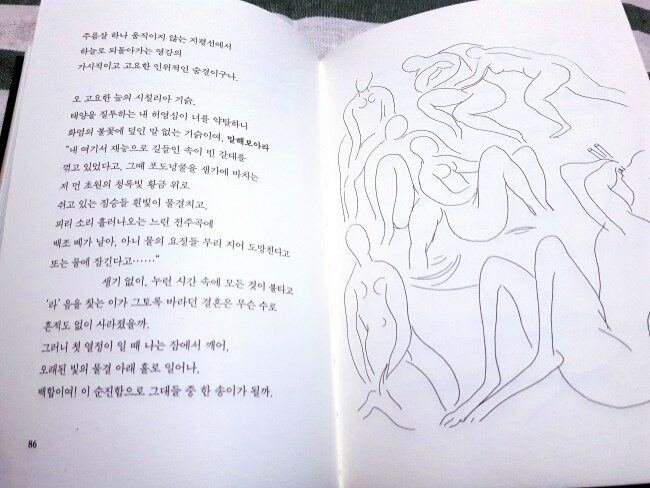 주름살 하나 움직이지 않는 지평선에서
하늘로 되돌아가는 영감의
가시적이고 고요한 인위적인 숨결이구나.
오 고요한 늪의 시칠리아 기슭,
태양을 질투하는 내 허영심이 너를 약탈하니
화염의 불꽃에 덮인 말 없는 기슭이여, 말해보아라
“내 여기서 재능으로 길들인 속이 빈 갈대를
꺾고 있었다고, 그때 포도넝쿨을 샘가에 바치는
저 먼 초원의 청록빛 황금 위로
쉬고 있는 짐승들 흰빛이 물결치고,
피리 소리 흘러나오는 느린 전주곡에
백조 떼가 날아, 아니 물의 요정들 무리 지어 도망친다고
또는 물에 잠긴다고……”
생기 없이, 누런 시간 속에 모든 것이 불타고
‘라’ 음을 찾는 이가 그토록 바라던 결혼은 무슨 수로
흔적도 없이 사라졌을까.
그러니 첫 열정이 일 때 나는 잠에서 깨어,
오래된 빛의 물결 아래 홀로 일어나,
백합이여! 이 순진함으로 그대들 중 한 송이가 될까.
86